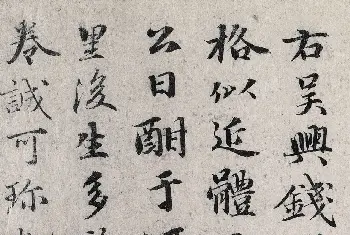 右吳興錢
格似近體
公日酣于
里後生多
卷誠可珎